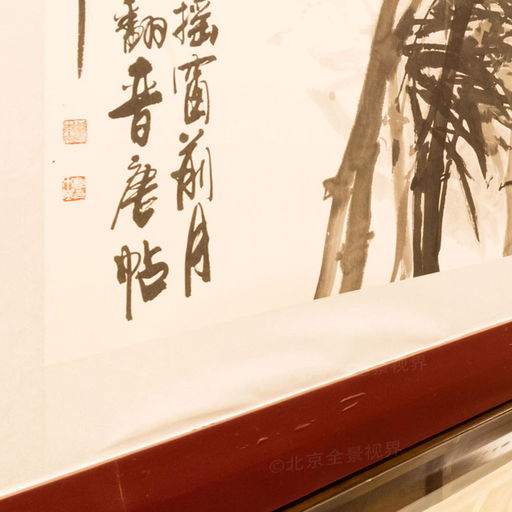 摇窗前月
翻晋唐帖
©北京全景视界
景视界